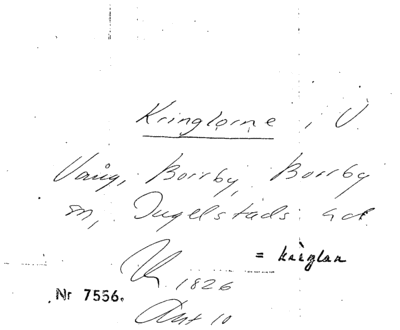 Kringlorne, V.
Vång, Borrby, Borrby
sn, Ingelstads hd
= kringlan
1826
Nr 7556.
Akt 10